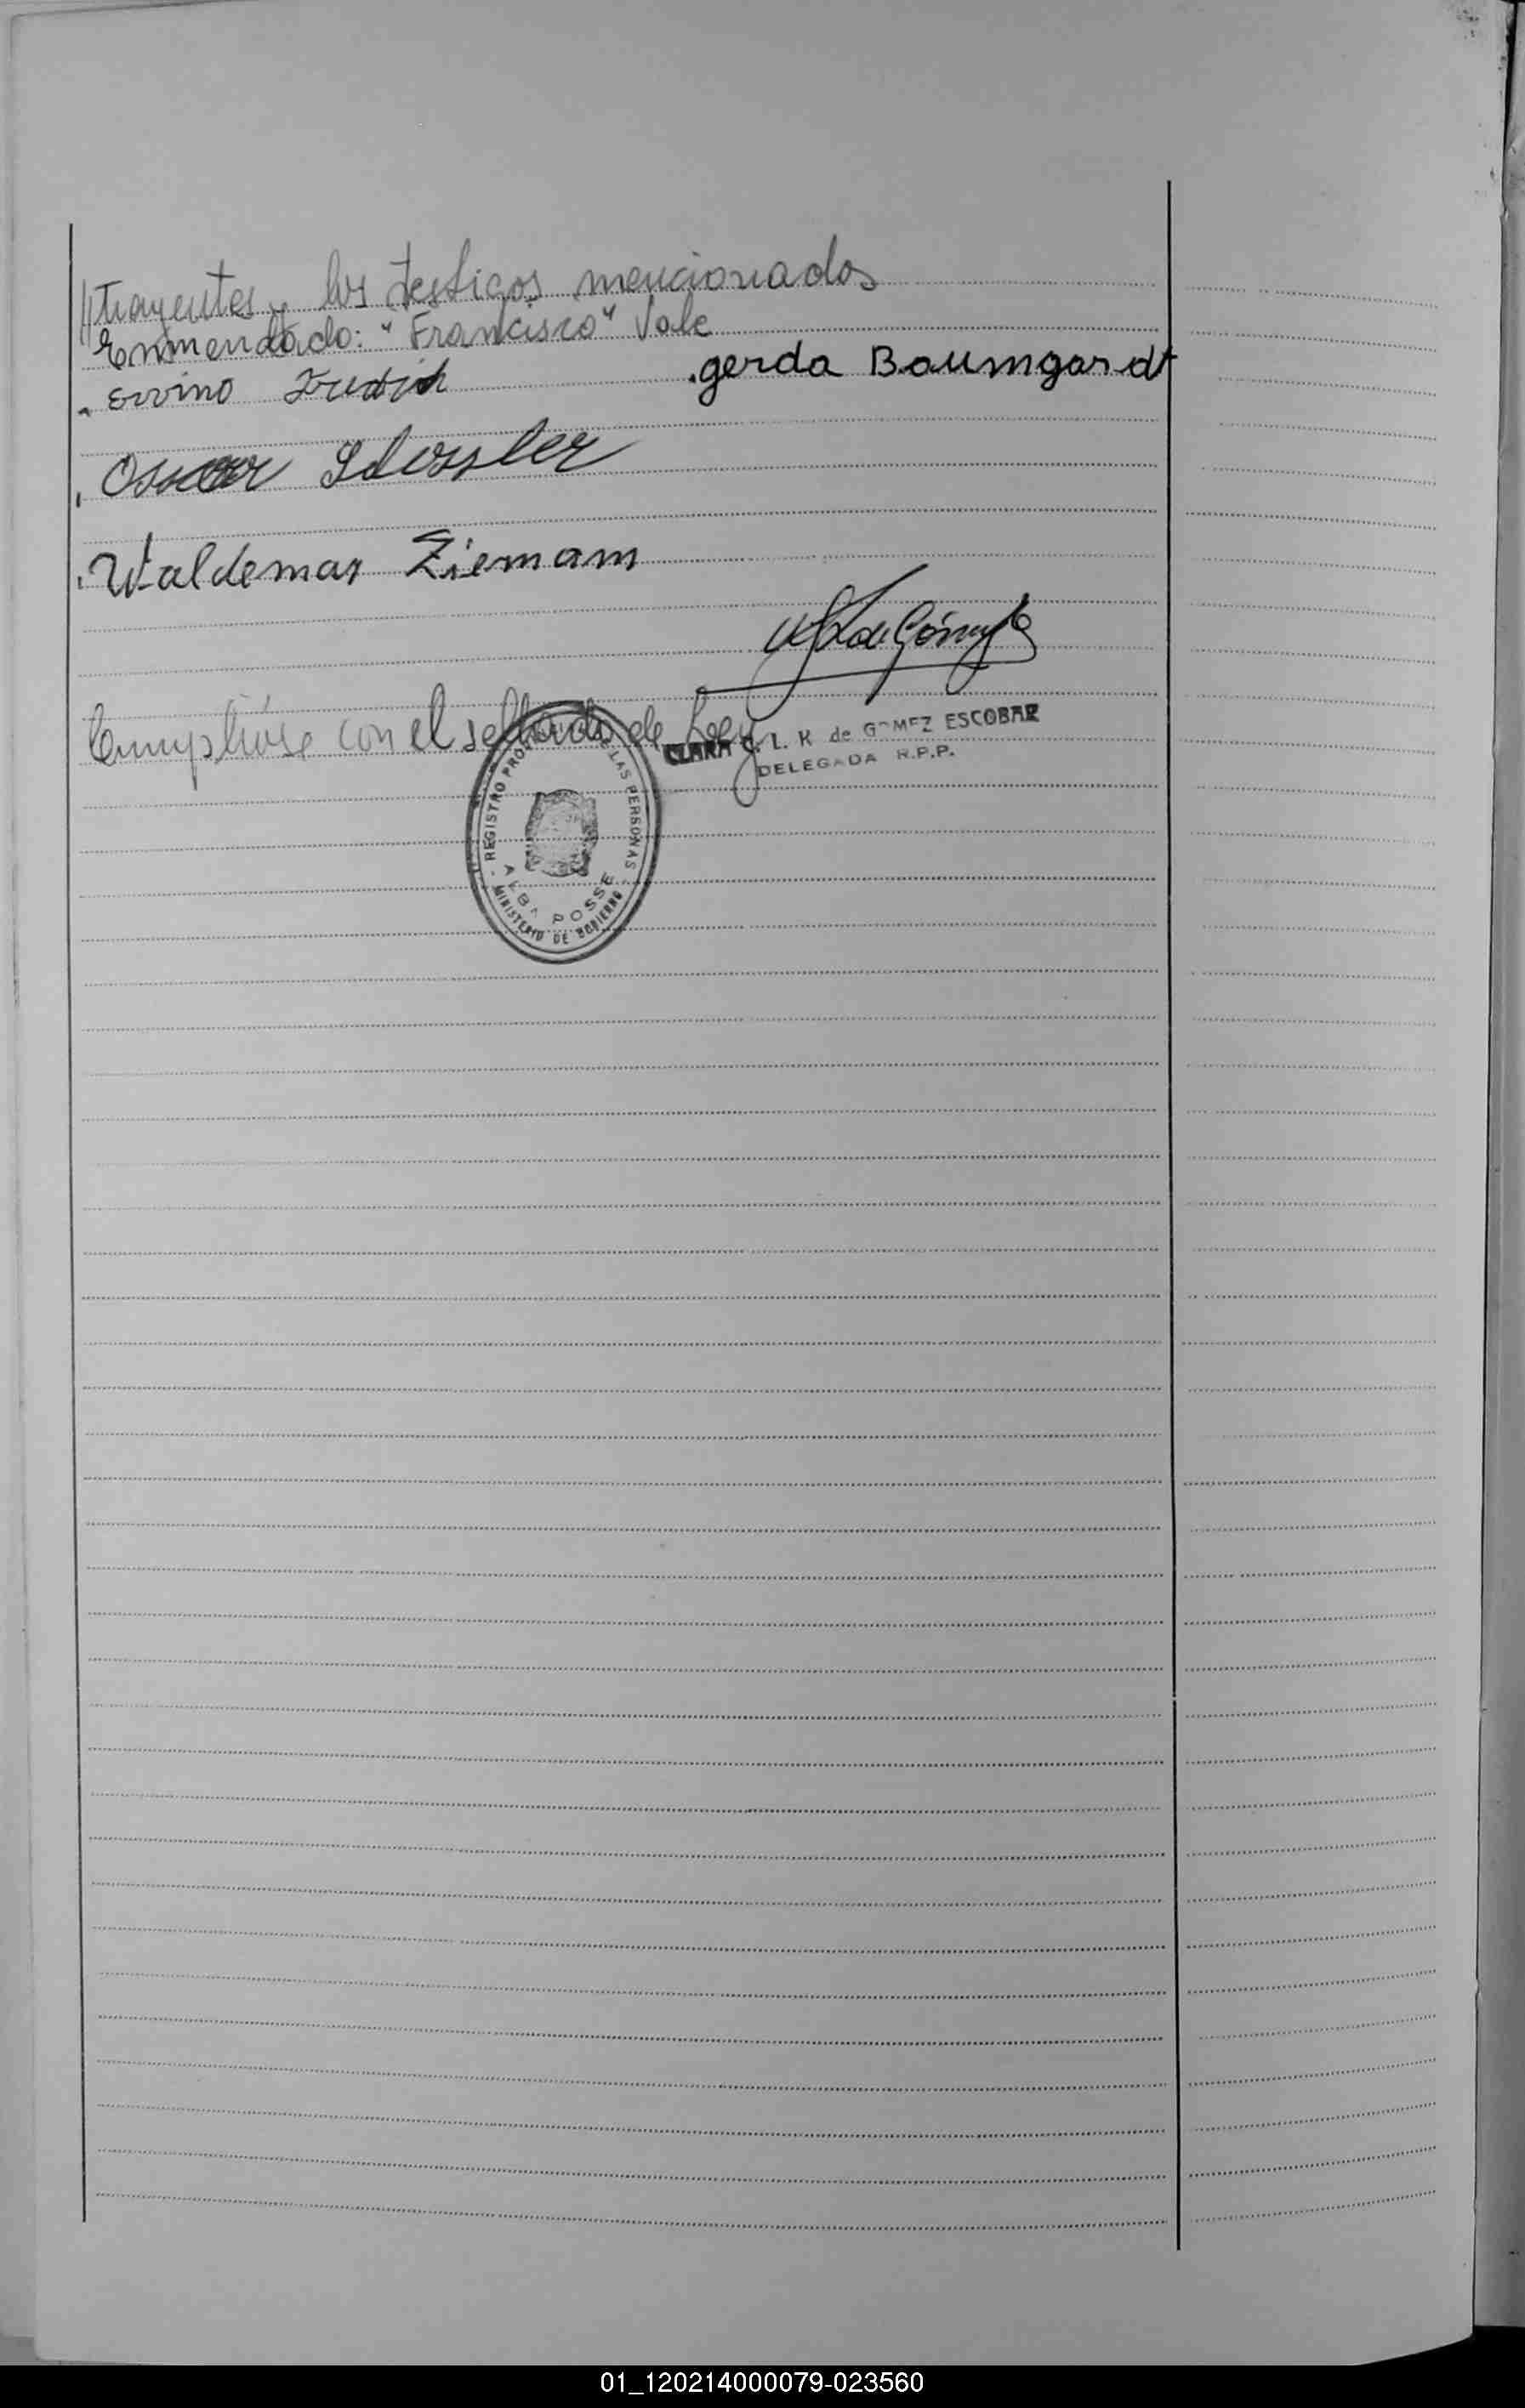 //trayentes y los testigos mencionados
Enmendado: "Francisco" Vale
Ervino gerda Baumgardt
Oscar
Waldemar Ziemam
de Gómez
Cumplióse con el sellado de Ley
CLARA C. L. K de GOMEZ ESCOBAR
DELEGADA R.P.P.
REGISTRO PROV LAS PERSONAS
ALBA POSSE
MINISTERIO DE GOBIERNO
01_120214000079-023560